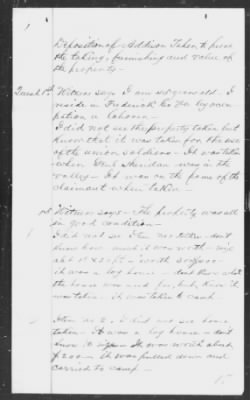 Deposition of Addison Taken to prove
the taking, furnishing and value of
the property -
Witness says I am years old. I
reside in Frederick Co Va. My occu
pation a laborer -
I did not see the property taken but
know that it was taken for the use
of the union soldiers - It was taken
when Genl Sheridan was in the
valley - It was on the farm of the
claimant when taken -
1st Witness says - The property was all
in good condition
I did not see Item no. - dont
know how much it was worth - size
abt 18 x 20 ft - worth
it was a log house - dont know what
the house was used for, but know it
was taken. It was taken to camp -
Item no 2, I did not see home
taken - It was a log house - dont
know its size - It was worth about
$200 - It was pulled down and
carried to camp -